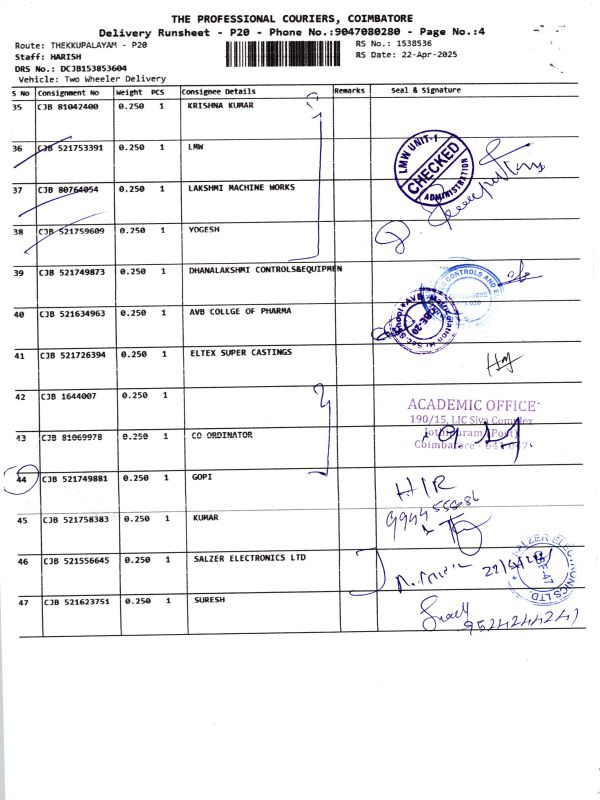 THE PROFESSIONAL COURIERS, COIMBATORE
Delivery Runsheet - P20 - Phone No.:9047080280 - Page No.:4
Route: THEKKUPALAYAM - P20
RS No.: 1538536
Staff: HARISH
RS Date: 22-Apr-2025
DRS No.: DCJB153853604
Vehicle: Two Wheeler Delivery
S No Consignment No Weight PCS Consignee Details Remarks Seal & Signature
35 CJB 81042400 0.250 1 KRISHNA KUMAR
36 CJB 521753391 0.250 1 LMW
LMW UNIT-1
CHECKED
ADMINISTRATION
37 CJB 80764054 0.250 1 LAKSHMI MACHINE WORKS
38 CJB 521759609 0.250 1 YOGESH
39 CJB 521749873 0.250 1 DHANALAKSHMI CONTROLS&EQUIPMEN
40 CJB 521634963 0.250 1 AVB COLLGE OF PHARMA
41 CJB 521726394 0.250 1 ELTEX SUPER CASTINGS
42 CJB 1644007 0.250 1
ACADEMIC OFFICE
190/15, LIC Siva Complex
43 CJB 81069978 0.250 1 CO ORDINATOR
Coimbatore - 641 047.
44 CJB 521749881 0.250 1 GOPI
H/R
45 CJB 521758383 0.250 1 KUMAR
46 CJB 521556645 0.250 1 SALZER ELECTRONICS LTD
SALZER ELECTRONICS LTD.
47 CJB 521623751 0.250 1 SURESH
9524244241